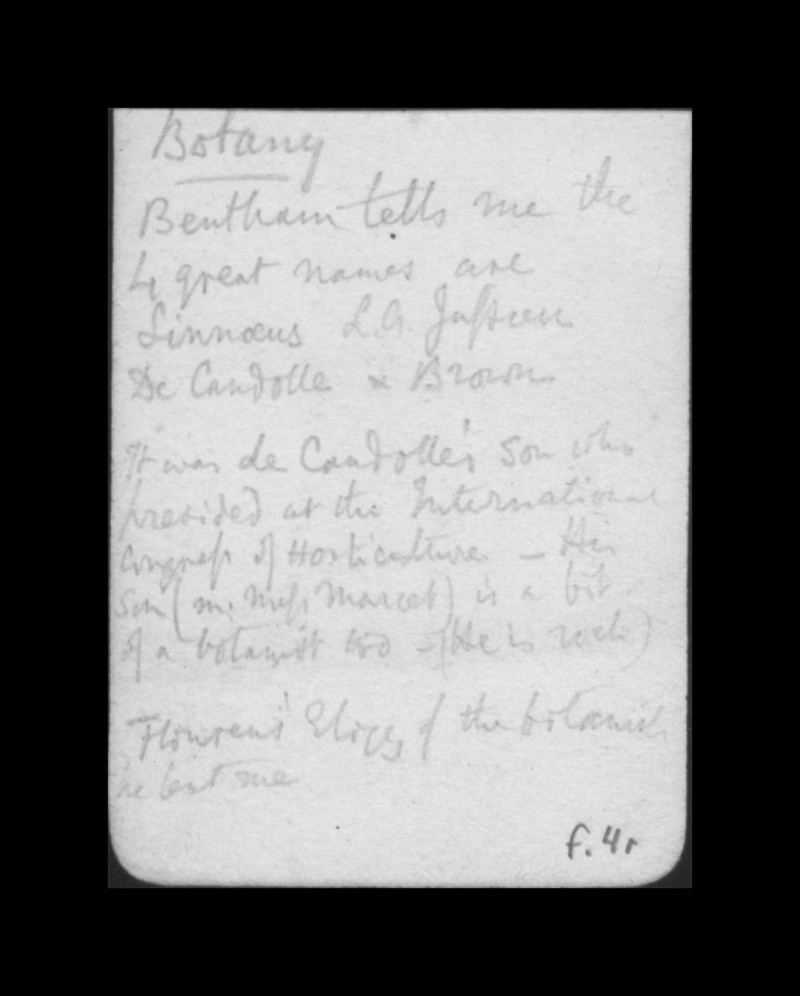 Botany
Bentham tells me the
4 great names are
Linnæus L.A. Jussieu
De Candolle & Brown
It was de Candolle's son who
presided at the International
Congress of Horticulture – His
Son (m. Miss Marcet) is a bit
of a botanist too – (He is rich)
Flourens' Eloges of the botanists
he lent me
f. 4r